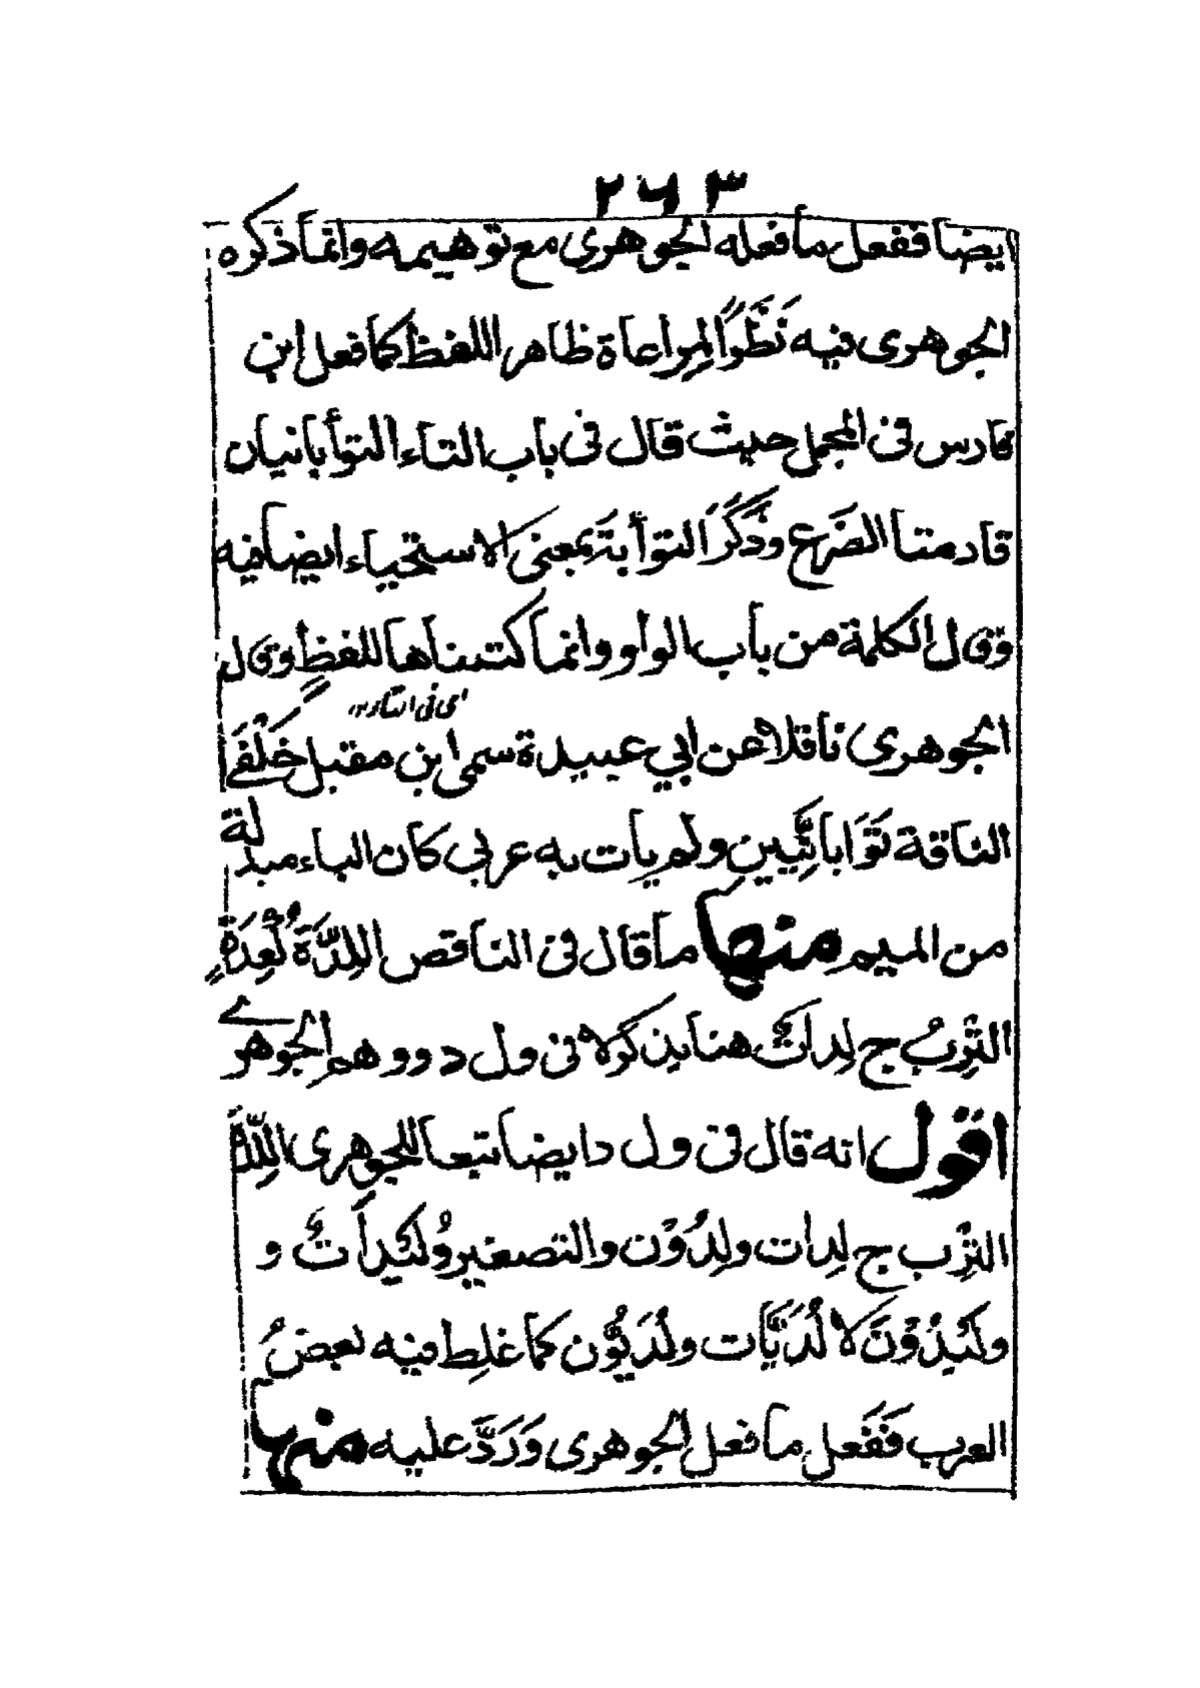 ٢٦٣
ايضا ففعل ما فعله الجوهرى مع توهيمه وانما ذكره
الجوهرى فيه نَظَرًا لِمراعاة ظاهر اللفظ كما فعل ابن
فارس فى المجمل حيث قال فى باب التاء التوأبانيان
قادمتا الضَرع وذَكَرَ التوأبةَ بمعنى الاستحياء ايضا فيه
وق ل الكلمة من باب الواو وانما كتبناها للفظِ وق ل
اى فى التاء
الجوهرى ناقلا عن ابي عبيدة سمى ابن مقبل خَلْفَے
الناقة تَوَابانِيَّينِ ولم يات به عربي كان الباء مبدلة
من الميم منها ما قال فى الناقص اللِدَّةُ كُعِدَةٍ
التِربُ ج لِداتٌ هنا يذكر لا فى ول د ووهم الجوهرے
اقول انه قال فى ول د ايضا تبعا للجوهرى اللِدَةُ
التِرْب ج لِدات ولِدُوْن والتصغير وُلَيْداتٌ و
وُلَيْدُوْنَ لا لُدَيَّات ولُدَيُّون كما غلِط فيه بعضُ
العرب فَفَعل ما فعل الجوهرى وَرَدَّ عليه منها